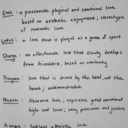 Eros : a passionate physical and emotional love
based on aesthetic enjoyment; stereotype
of romantic love
Ludus : a love that is played as a game or sport
Storge : an affectionate love that slowly develops
from friendship, based on similarity
Pragma : love that is driven by the head, not the
heart; undemonstrative
Mania : obsessive love; experience great emotional
highs and lows; very possessive and jealous
Agape : selfless altruistic love